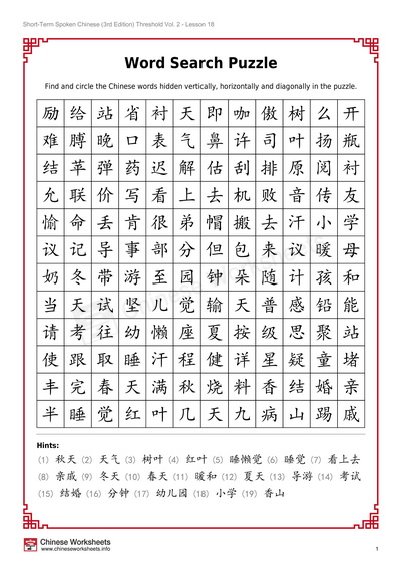 Short-Term Spoken Chinese (3rd Edition) Threshold Vol. 2 - Lesson 18
Word Search Puzzle
Find and circle the Chinese words hidden vertically, horizontally and diagonally in the puzzle.
励 给 站 省 衬 天 即 咖 傲 树 么 开
难 膊 晚 口 表 气 鼻 许 司 叶 扬 瓶
结 苹 弹 药 迟 解 估 刮 排 原 阅 衬
允 联 价 写 看 上 去 机 败 音 传 友
愉 命 丢 肯 很 弟 帽 搬 去 汗 小 学
议 记 导 事 部 分 但 包 来 议 暖 母
奶 冬 带 游 至 园 钟 朵 随 计 孩 和
当 天 试 坚 儿 觉 输 天 普 感 铅 能
请 考 往 幼 懒 座 夏 按 级 思 聚 站
使 跟 取 睡 汗 程 健 详 星 疑 童 堵
丰 完 春 天 满 秋 烧 料 香 结 婚 亲
半 睡 觉 红 叶 几 天 九 病 山 踢 戚
Hints:
(1) 秋天 (2) 天气 (3) 树叶 (4) 红叶 (5) 睡懒觉 (6) 睡觉 (7) 看上去
(8) 亲戚 (9) 冬天 (10) 春天 (11) 暖和 (12) 夏天 (13) 导游 (14) 考试
(15) 结婚 (16) 分钟 (17) 幼儿园 (18) 小学 (19) 香山
Chinese Worksheets
www.chineseworksheets.info
1